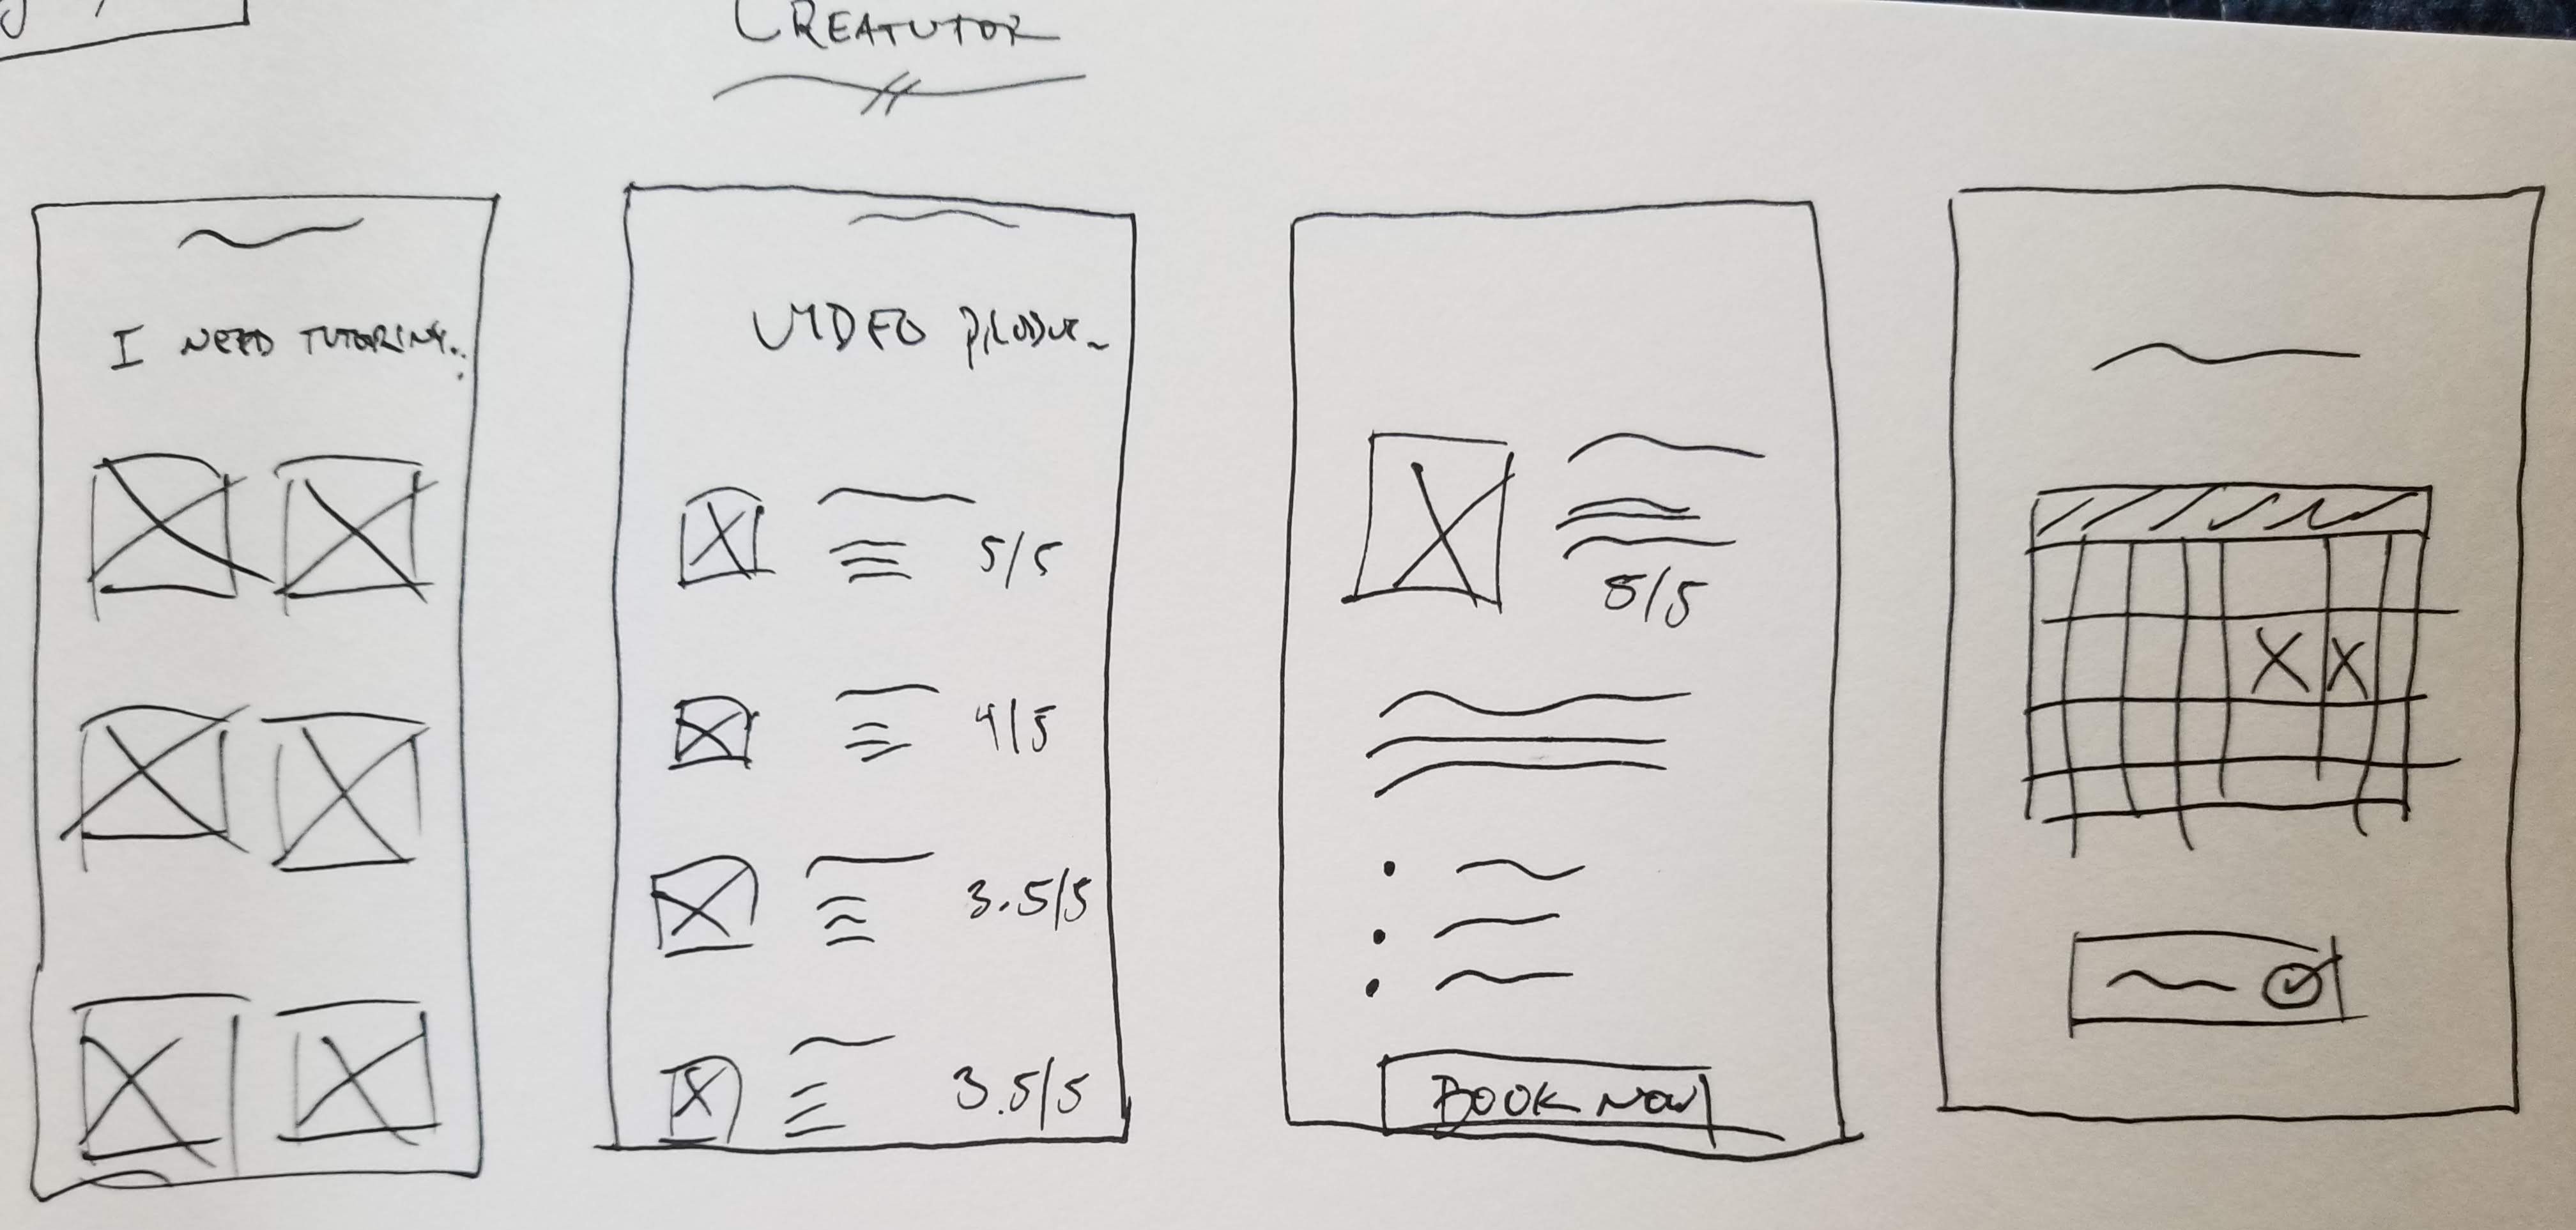 CREATUTOR
I NEED TUTORING..
VIDEO PRODUC_
5/5
4/5
3.5/5
3.5/5
5/5
BOOK NOW